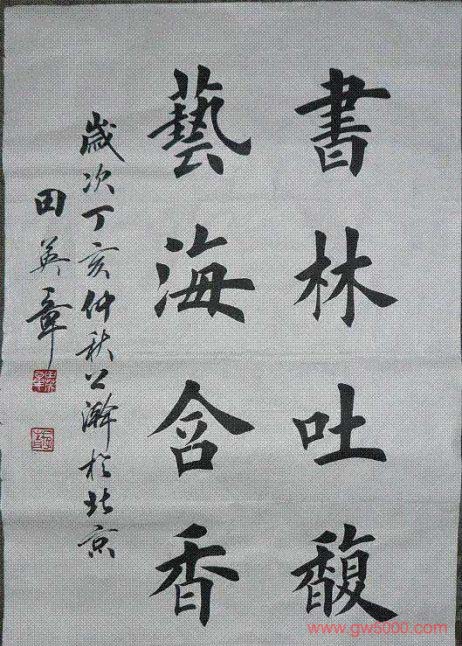 書林吐馥
藝海含香
歲次丁亥仲秋以瀚於北京
田英章
www.gw5000.com